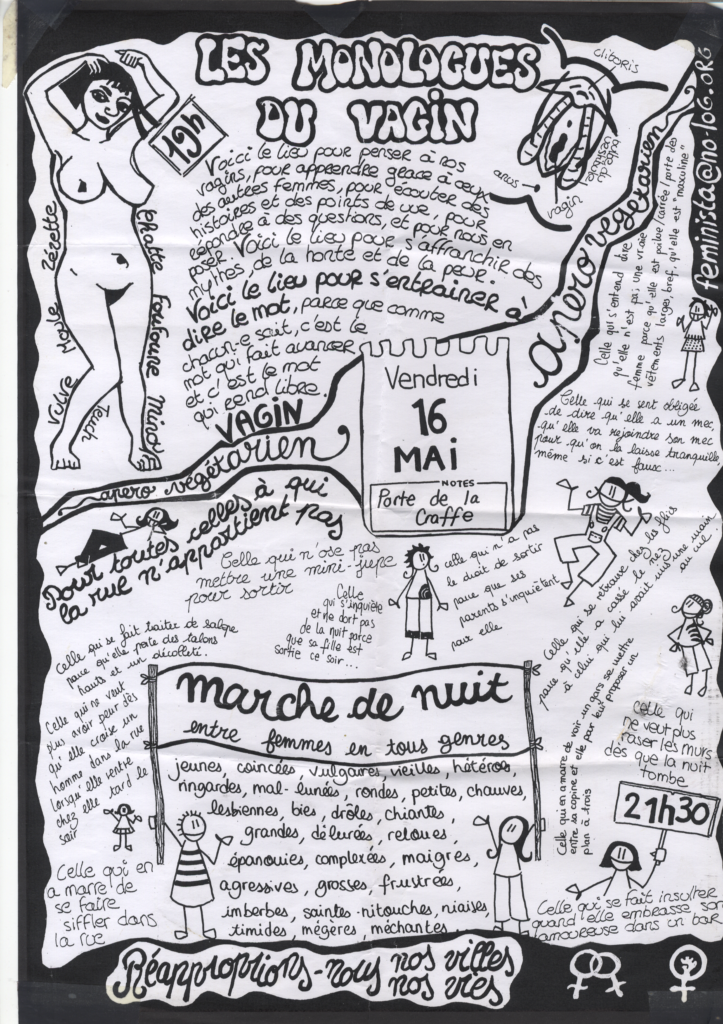 LES MONOLOGUES
DU VAGIN
19h
Voici le lieu pour penser à nos
vagins, pour apprendre grâce à ceux
des autres femmes, pour écouter des
histoires et des points de vue, pour
répondre à des questions, et pour nous en
poser. Voici le lieu pour s'affranchir des
mythes, de la honte et de la peur.
Voici le lieu pour s'entrainer à
dire le mot, parce que comme
chacun-e sait, c'est le
mot qui fait avancer
et c'est le mot
qui rend libre.
VAGIN
Zézette
Moule
Vulve
Chatte
Foufoune
Minou
Teuch
clitoris
anus
vagin
feminista@no-log.ORG
apero végétarien
apero végétarien
Vendredi
16
MAI
NOTES
Porte de la
Craffe
Celle qui s'entend dire
qu'elle n'est pas une vraie
femme parce qu'elle est poilue/carrée/porte des
vêtements larges, bref, qu'elle est "masculine"
Celle qui se sent obligée
de dire qu'elle a un mec,
qu'elle va rejoindre son mec
pour qu'on la laisse tranquille
même si c'est faux...
Pour toutes celles à qui
la rue n'appartient pas
Celle qui n'ose pas
mettre une mini-jupe
pour sortir
Celle
qui s'inquiète
et ne dort pas
de la nuit parce
que sa fille est
sortie ce soir...
Celle qui n'a pas
le droit de sortir
parce que ses
parents s'inquiètent
pour elle
Celle qui se retrouve chez les flics
parce qu'elle a cassé le nez
à celui qui lui avait mis une main
au cul.
Celle qui se fait traiter de salope
parce qu'elle porte des talons
hauts et un décolleté.
Celle qui ne veut
plus avoir peur dès
qu'elle croise un
homme dans la rue
lorsqu'elle rentre
chez elle tard le
soir
Celle qui en a marre de voir un gars se mettre
entre sa copine et elle pour leur proposer un
plan à trois
Celle qui
ne veut plus
raser les murs
dès que la nuit
tombe
marche de nuit
entre femmes en tous genres
jeunes, coincées, vulgaires, vieilles, hétéros,
ringardes, mal-lunées, rondes, petites, chauves
lesbiennes, bies, drôles, chiantes,
grandes, délurées, reloues,
épanouies, complexées, maigres,
agressives, grosses, frustrées,
imberbes, saintes-nitouches, niaises
timides, mégères, méchantes
21h30
Celle qui en
a marre de
se faire
siffler dans
la rue
Celle qui se fait insulter
quand elle embrasse son
amoureuse dans un bar
Réapproprions-nous nos villes
nos vies